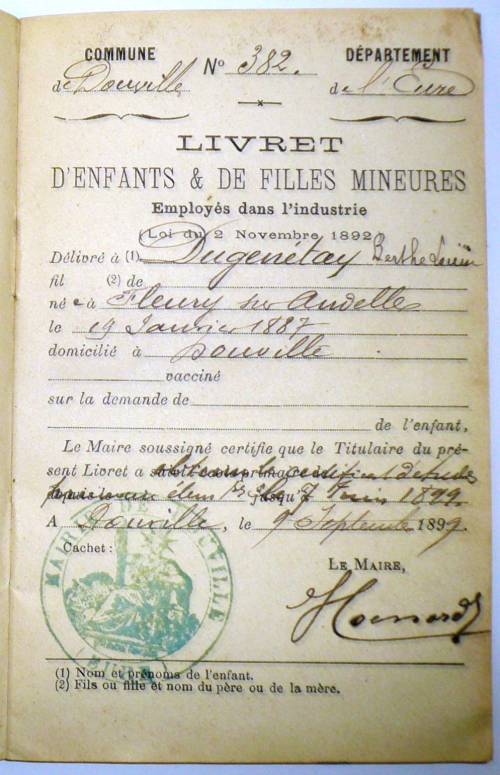 COMMUNE
de Douville
N° 382.
DÉPARTEMENT
de l'Eure
LIVRET
D'ENFANTS & DE FILLES MINEURES
Employés dans l'industrie
(Loi du 2 Novembre 1892)
Délivré à (1) Dugenétay Berthe Louise
fil (2) de
né e à Fleury sur Andelle
le 19 Janvier 1887
domicilié à Douville
vacciné
sur la demande de
de l'enfant,
Le Maire soussigné certifie que le Titulaire du pré-
sent Livret a certificat d'études
jusqu' 1899.
A Douville, le 9 Septembre 1899.
Cachet :
MAIRIE DE DOUVILLE
(EURE)
LE MAIRE,
(1) Nom et prénoms de l'enfant.
(2) Fils ou fille et nom du père ou de la mère.